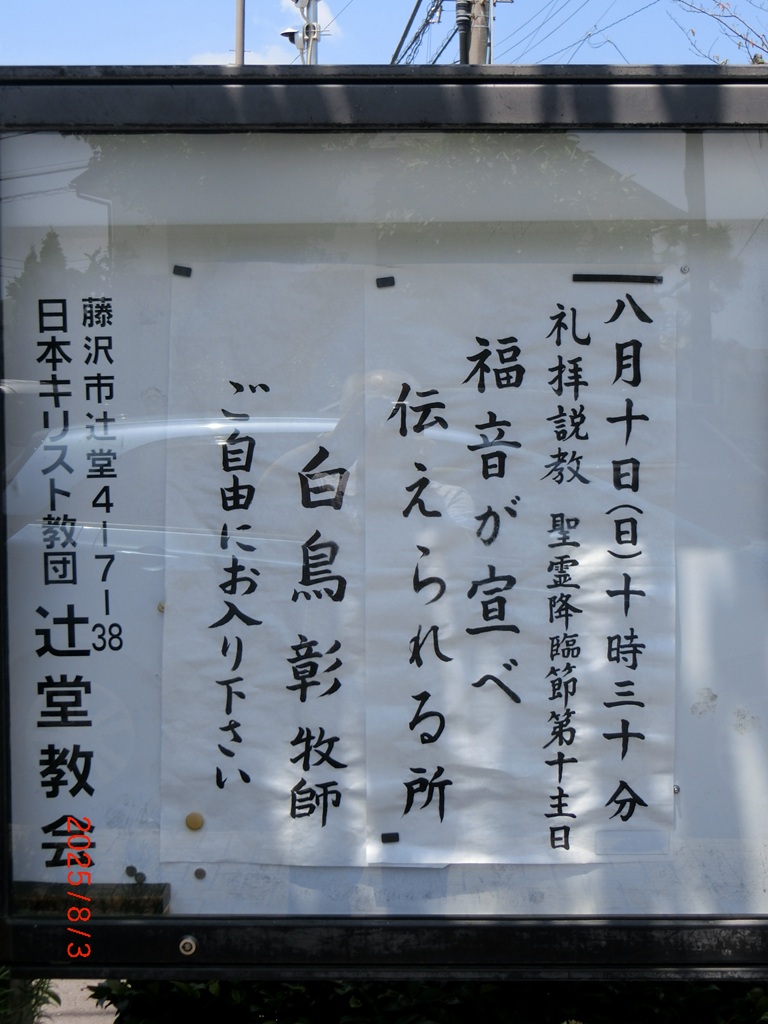 八月十日(日)十時三十分
礼拝説教 聖霊降臨節第十主日
福音が宣べ
伝えられる所
白鳥 彰 牧師
ご自由にお入り下さい
藤沢市辻堂4-7-38
日本キリスト教団 辻堂教会
2025/8/3